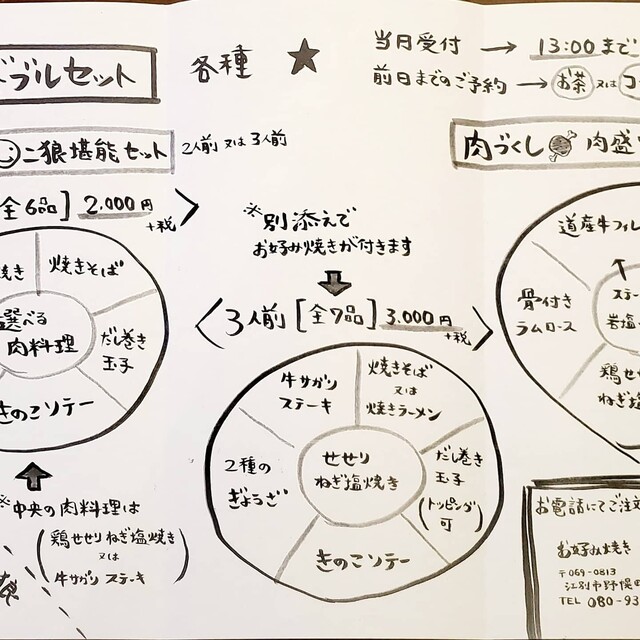 ドブルセット
各種 ★
当日受付 → 13:00まで
前日までのご予約 → お茶 又は コ
二狼堪能セット 2人前 又は 3人前
全6品] 2.000円 +税
焼き
焼きそば
選べる
肉料理
だし巻き
玉子
きのこソテー
※中央の肉料理は
(鶏せせりねぎ塩焼き
又は
牛サガリ ステーキ)
※別添えで
お好み焼きが付きます
3人前 [全7品] 3.000円 +税
牛サガリ
ステーキ
焼きそば
又は
焼きラーメン
2種の
ぎょうざ
せせり
ねぎ塩焼き
だし巻き
玉子
(トッピング
可)
きのこソテー
肉づくし 肉盛
道産牛フィレ
骨付き
ラムロース
ステー
岩塩
鶏せせ
ねぎ塩
お電話にてご注文
お好み焼き
〒069-0813
江別市野幌
TEL 080-93